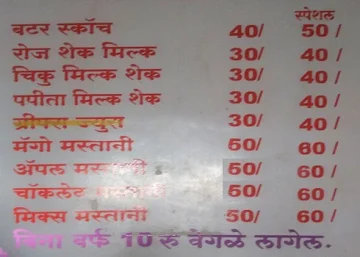 स्पेशल
बटर स्कॉच 40/ 50/
रोज शेक मिल्क 30/ 40/
चिकु मिल्क शेक 30/ 40/
पपीता मिल्क शेक 30/ 40/
ग्रीप्स ज्युस 30/ 40/
मॅगो मस्तानी 50/ 60/
ॲपल मस्तानी 50/ 60/
चॉकलेट मस्तानी 50/ 60/
मिक्स मस्तानी 50/ 60/
विना वर्फ 10 रु वेगळे लागेल.